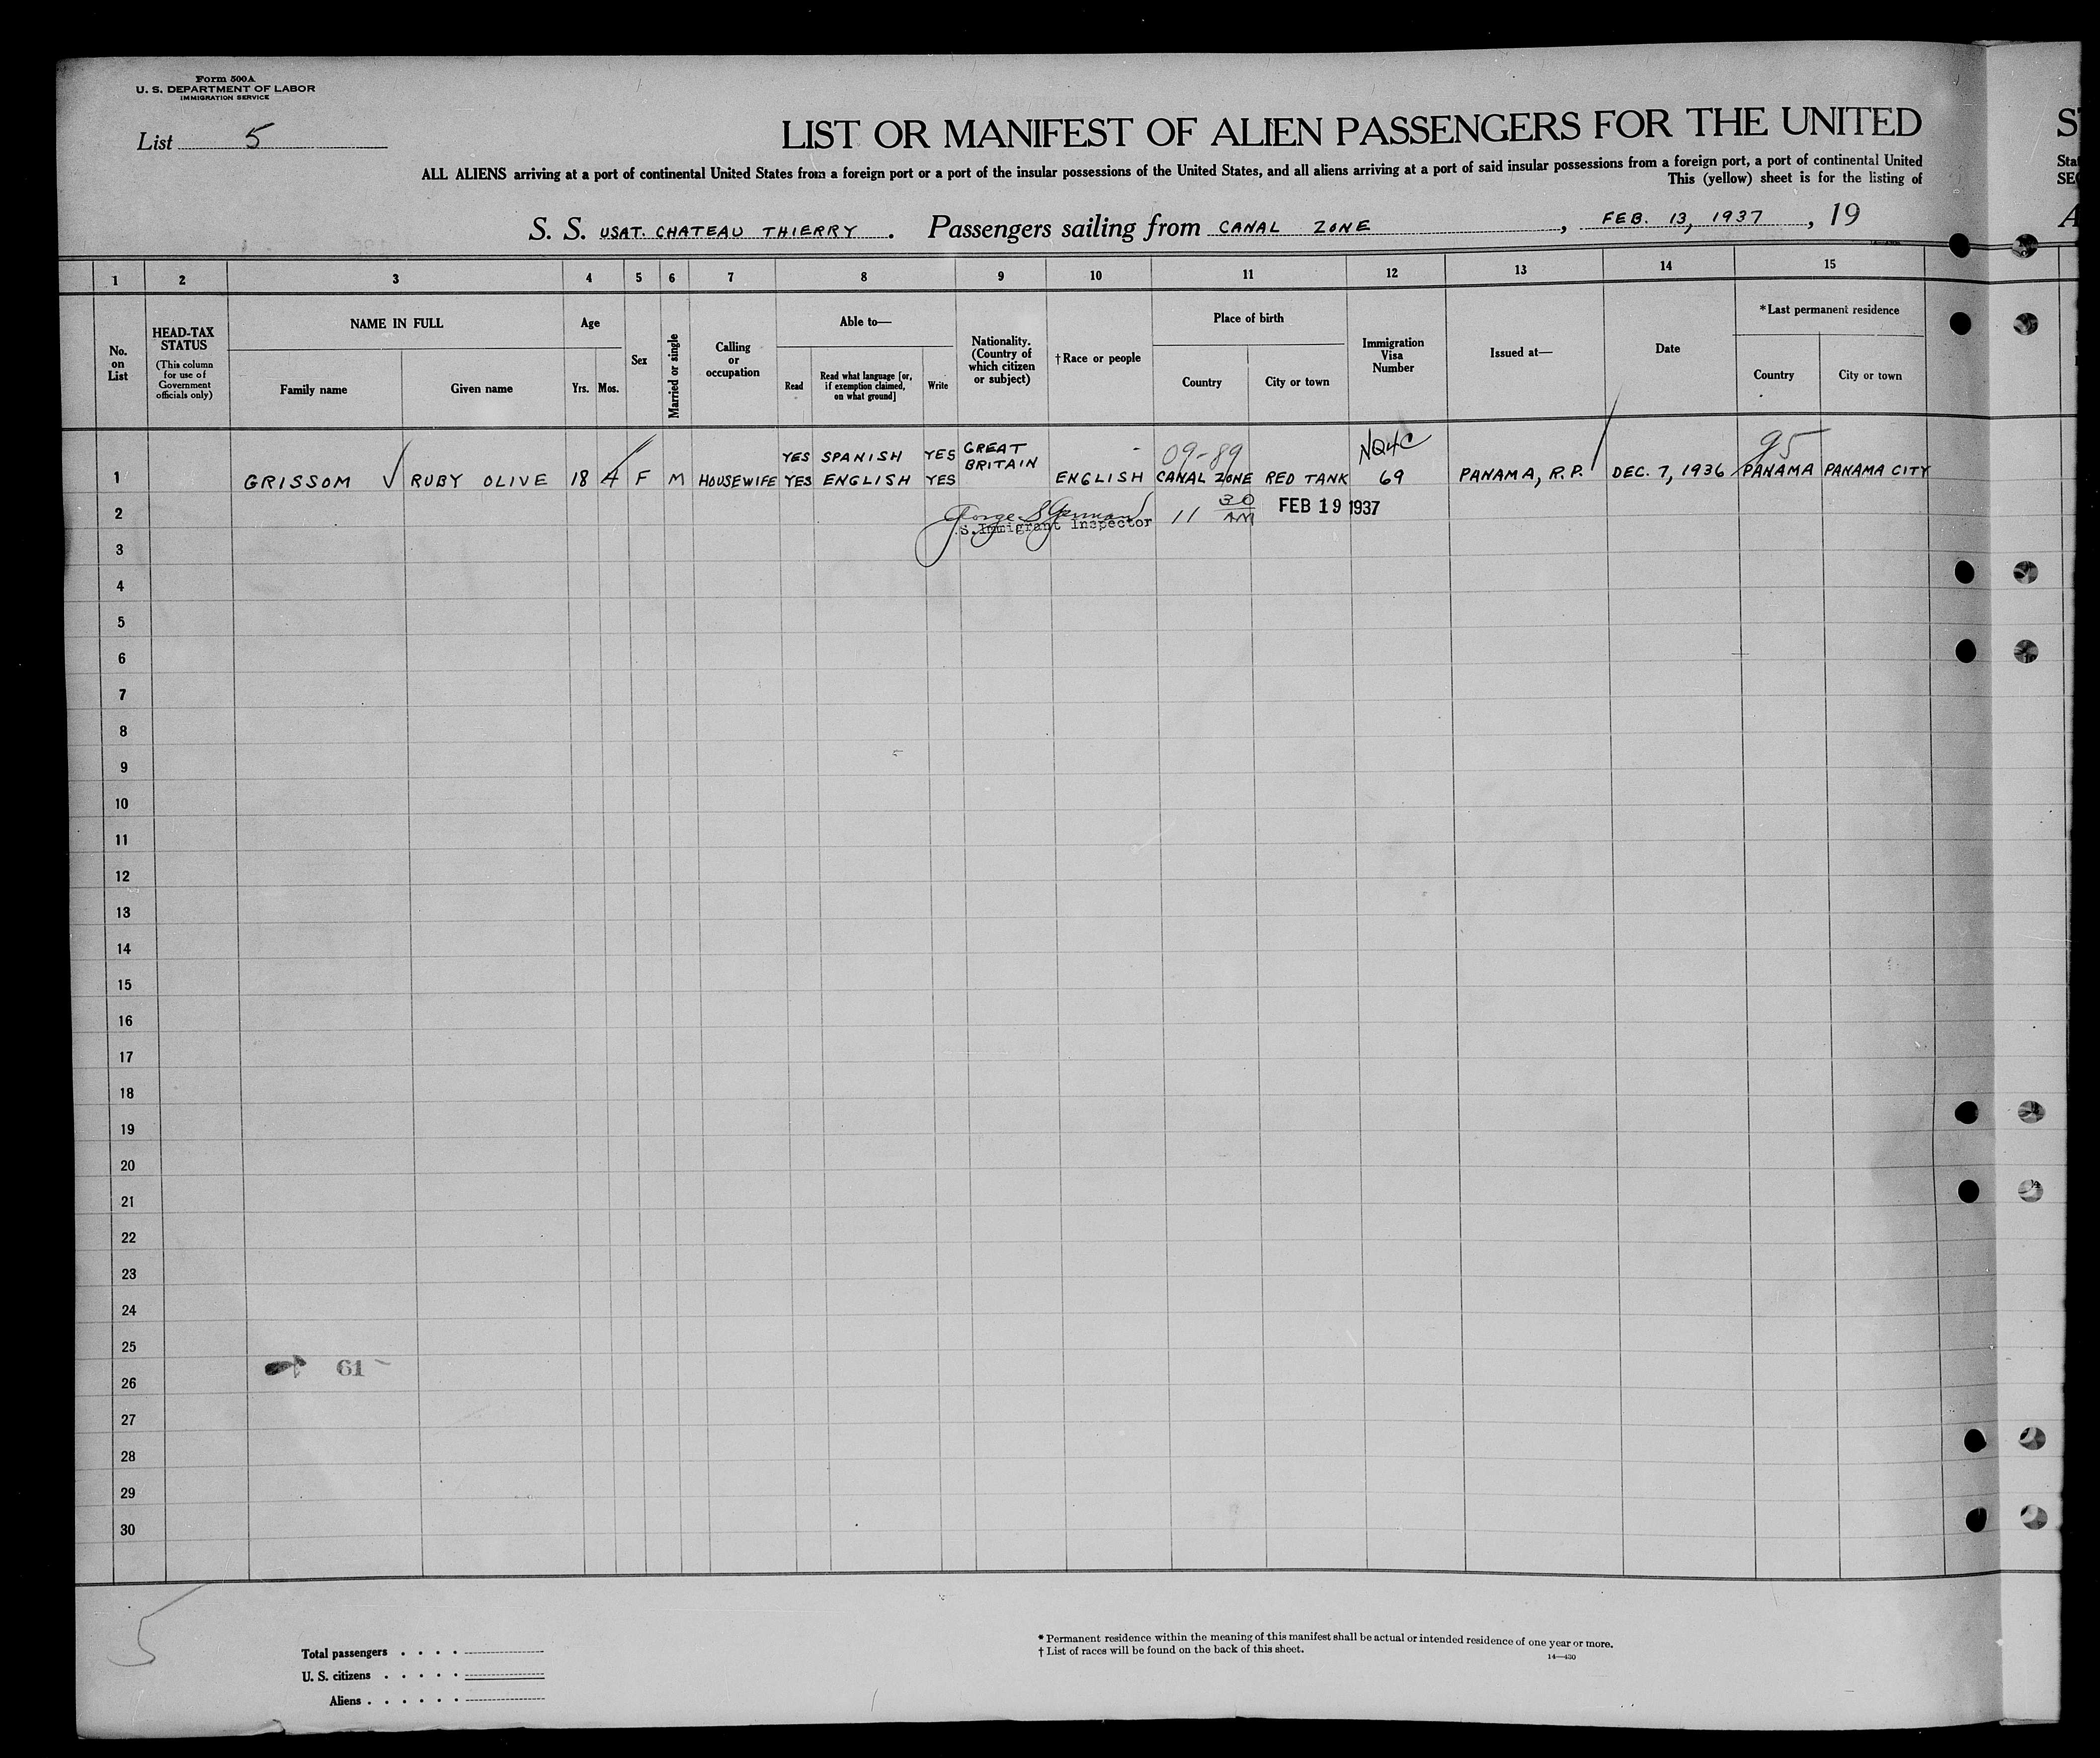 Form 500A
U. S. DEPARTMENT OF LABOR
IMMIGRATION SERVICE
List 5
LIST OR MANIFEST OF ALIEN PASSENGERS FOR THE UNITED
ALL ALIENS arriving at a port of continental United States from a foreign port or a port of the insular possessions of the United States, and all aliens arriving at a port of said insular possessions from a foreign port, a port of continental United
This (yellow) sheet is for the listing of
S. S. USAT. CHATEAU THIERRY . Passengers sailing from CANAL ZONE , FEB. 13, 1937 , 19
1 2 3 4 5 6 7 8 9 10 11 12 13 14 15
No. on List
HEAD-TAX STATUS
(This column for use of Government officials only)
NAME IN FULL
Family name
Given name
Age
Yrs. Mos.
Sex
Married or single
Calling or occupation
Able to—
Read
Read what language [or, if exemption claimed, on what ground]
Write
Nationality. (Country of which citizen or subject)
†Race or people
Place of birth
Country
City or town
Immigration Visa Number
Issued at—
Date
*Last permanent residence
Country
City or town
YES SPANISH YES GREAT BRITAIN 09-89 NQ4C 95
1 GRISSOM RUBY OLIVE 18 4 F M HOUSEWIFE YES ENGLISH YES ENGLISH CANAL ZONE RED TANK 69 PANAMA, R.P. DEC. 7, 1936 PANAMA PANAMA CITY
2 11 30 AM FEB 19 1937
S. Immigrant Inspector
3
4
5
6
7
8
9
10
11
12
13
14
15
16
17
18
19
20
21
22
23
24
25
61
26
27
28
29
30
5
Total passengers
U. S. citizens
Aliens
* Permanent residence within the meaning of this manifest shall be actual or intended residence of one year or more.
† List of races will be found on the back of this sheet.
14—430